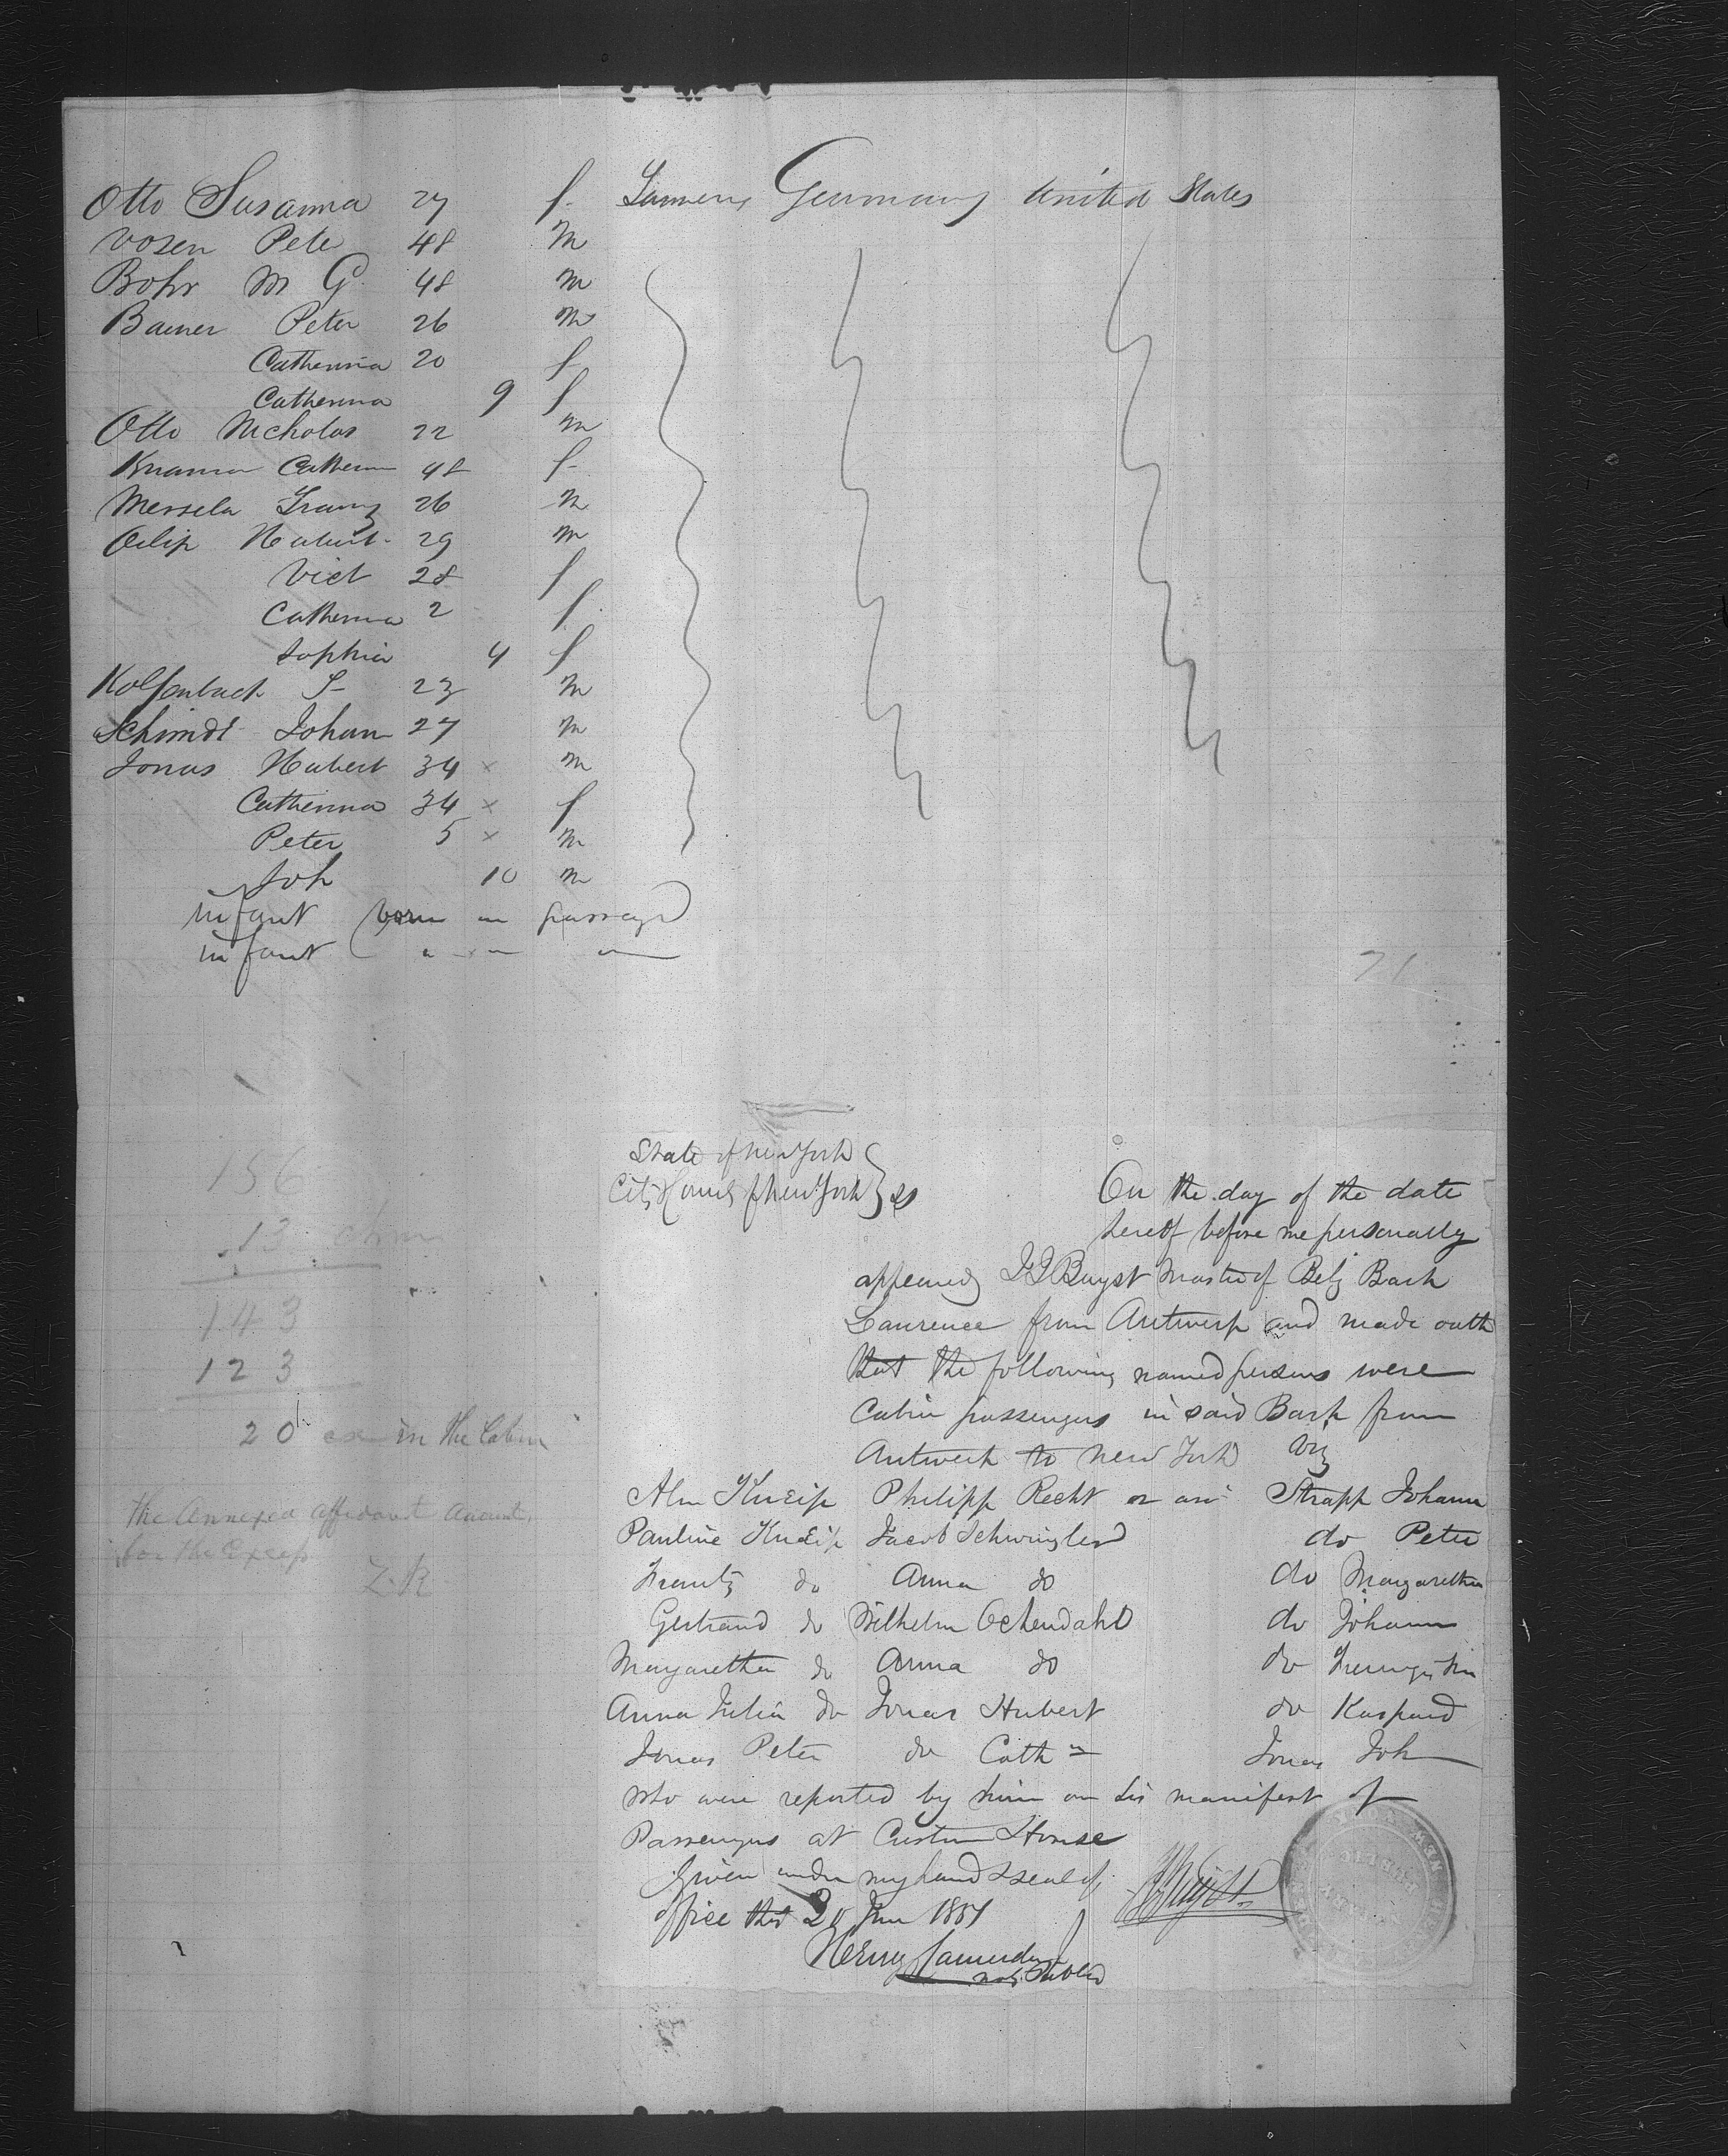 Otto Susanna 27 f. Farmers Germany United States
Vosen Peter 48 m
Bohr M G. 48 m
Bauer Peter 26 m
Catherina 20 f
Catherina 9 f
Otto Nicholas 22 m
Catherin 48 f
Franz 26 m
Hubert 29 m
Vict 28 f
Catherina 2 f
Sophia 4 f
Kolfenbach S 23 m
Schimdt Johann 27 m
Jonas Hubert 34 x m
Catherina 34 x f
Peter 5 x m
Joh 10 m
infant born on passage
infant " " "
71
156
13
143
123
20 in the Cabin
the annexed affidavit
for the Excess
State of New York
City & County of New York } ss
On the day of the date
hereof before me personally
appeared Master of Belg Bark
Laurence from Antwerp and made oath
that the following named persons were
Cabin passengers in said Bark from
Antwerp to New York Viz
Kneip Philipp Recht Strapp Johann
Pauline Kneip Jacob Schwingler do Peter
Frantz do Anna do do Margaretha
Gertraud do Wilhelm Ochendahl do Johann
Margaretha do Anna do do
Anna Julia do Jonas Hubert do Kaspard
Jonas Peter do Cath Jonas Joh
who were reported by him on his manifest of
Passengers at Custom House
Given under my hand & seal of
office this 20 June 1857
Henry
Not. Public